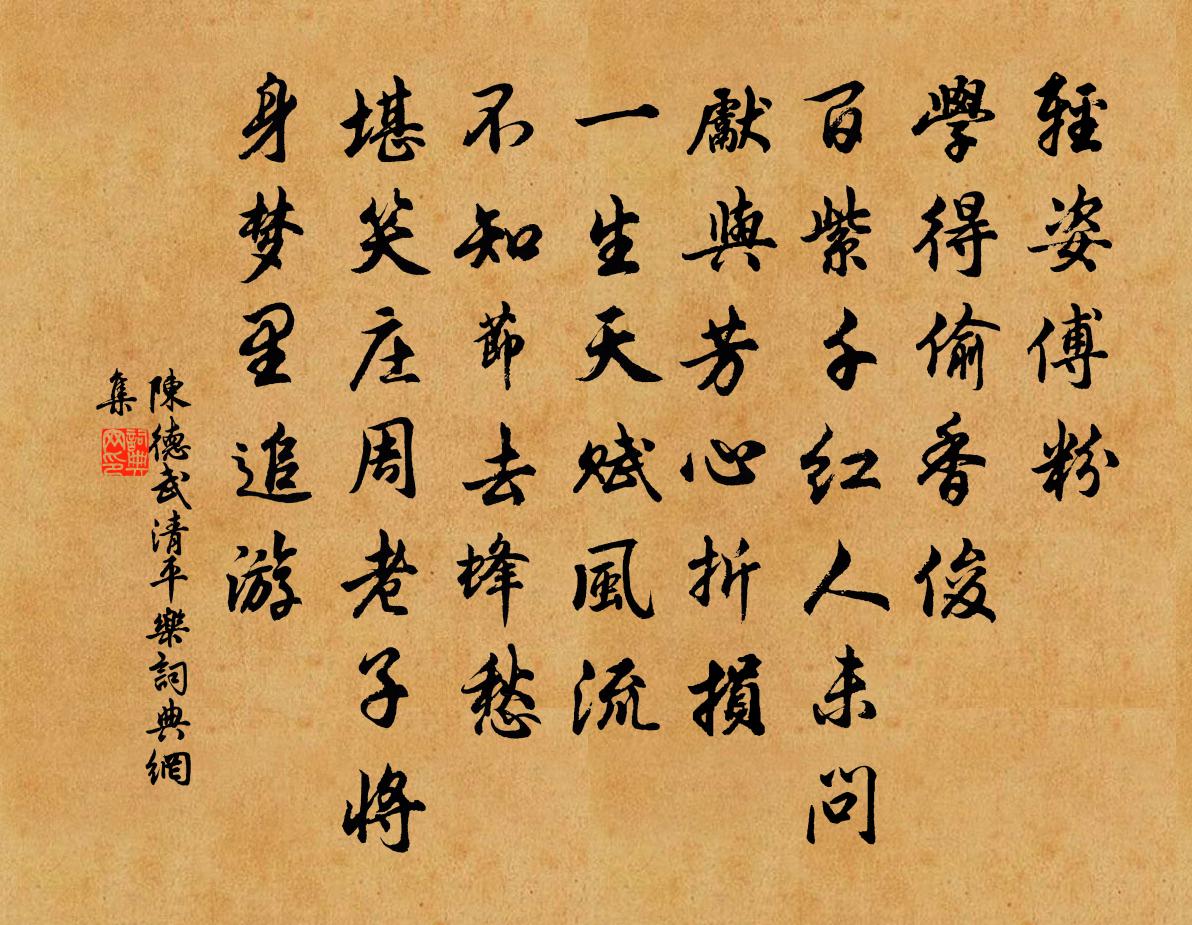 輕姿傅粉
學得偷香俊
百紫千紅人未問
獻與芳心折損
一生天賦風流
不知節去蜂愁
堪笑庄周老子將
身梦里追游
陳德武清平樂詞典網
集
詞典
网印